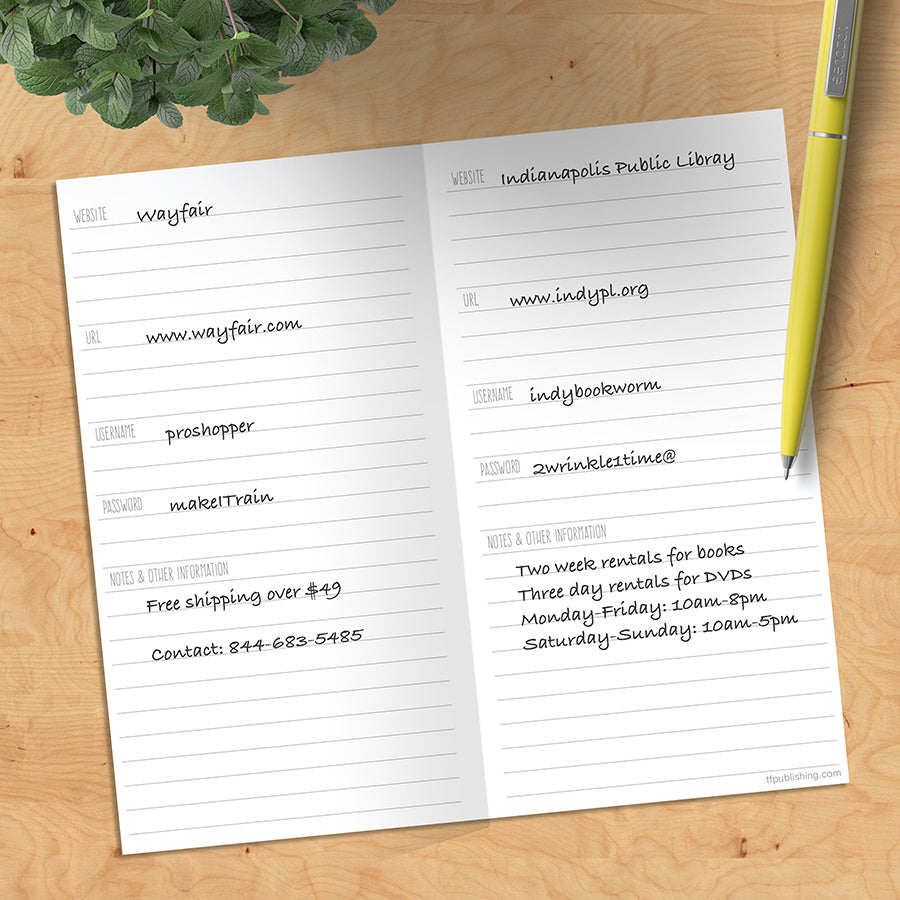 WEBSITE Wayfair
URL www.wayfair.com
USERNAME proshopper
PASSWORD makeITrain
NOTES & OTHER INFORMATION
Free shipping over $49
Contact: 844-683-5485
WEBSITE Indianapolis Public Libray
URL www.indypl.org
USERNAME indybookworm
PASSWORD 2wrinkle1time@
NOTES & OTHER INFORMATION
Two week rentals for books
Three day rentals for DVDs
Monday-Friday: 10am-8pm
Saturday-Sunday: 10am-5pm
tfpublishing.com